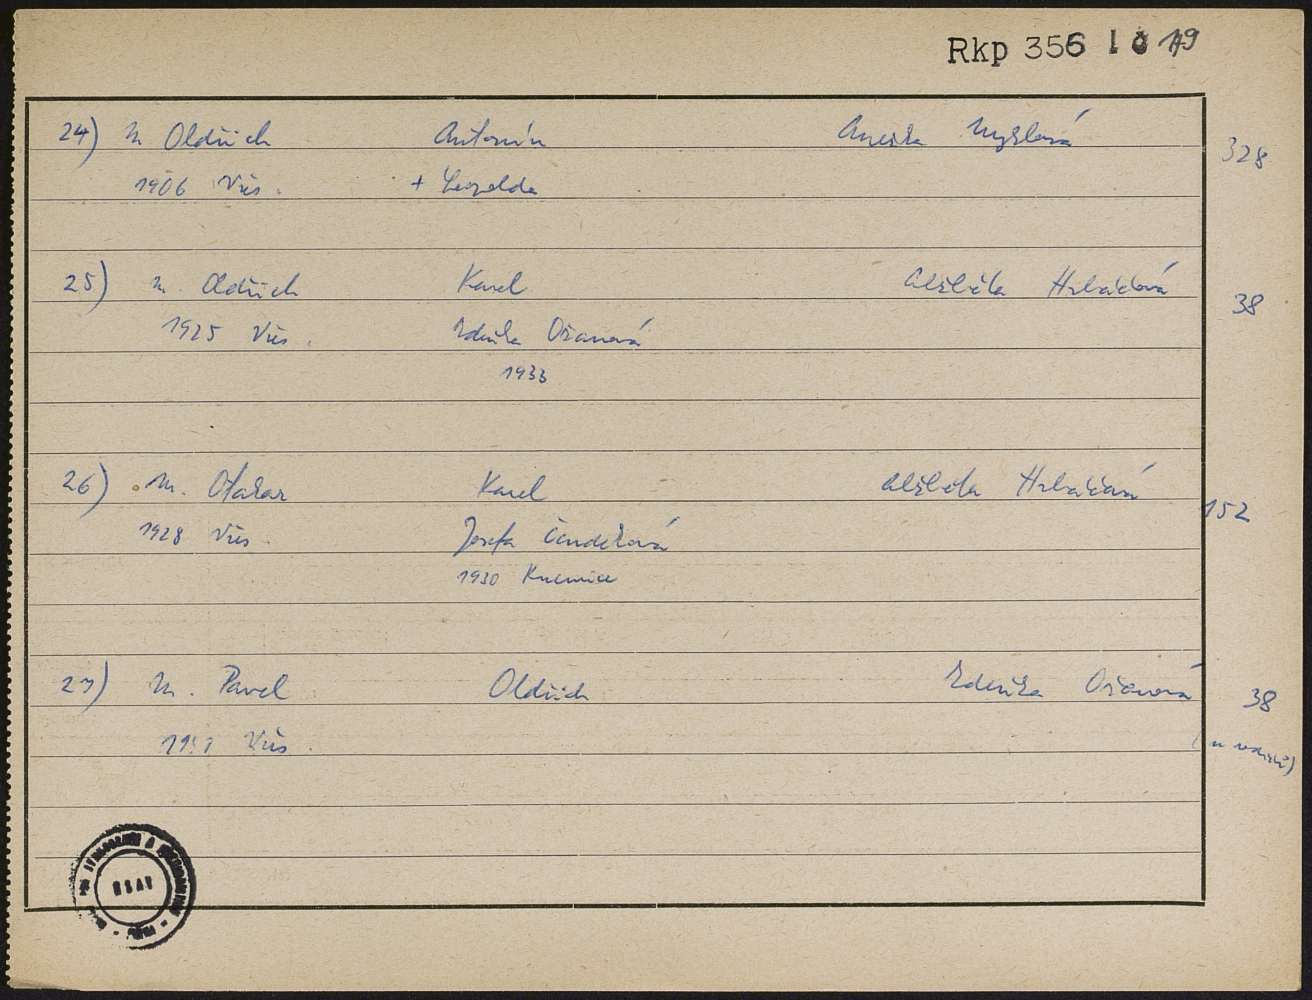 Rkp 356 10 19
24) m Oldřich Antonín Anežka Myslová 328
1906 Věs. + Leopolda
25) m. Oldřich Karel Alžběta Hrbáčová 38
1925 Věs. Zdeňka Ožanová
1933
26) m. Otakar Karel Alžběta Hrbáčová 152
1928 Věs. Josefa Čandežová
1930
27) m. Pavel Oldřich Zdeňka Ožanová 38
Věs. (u rodičů)